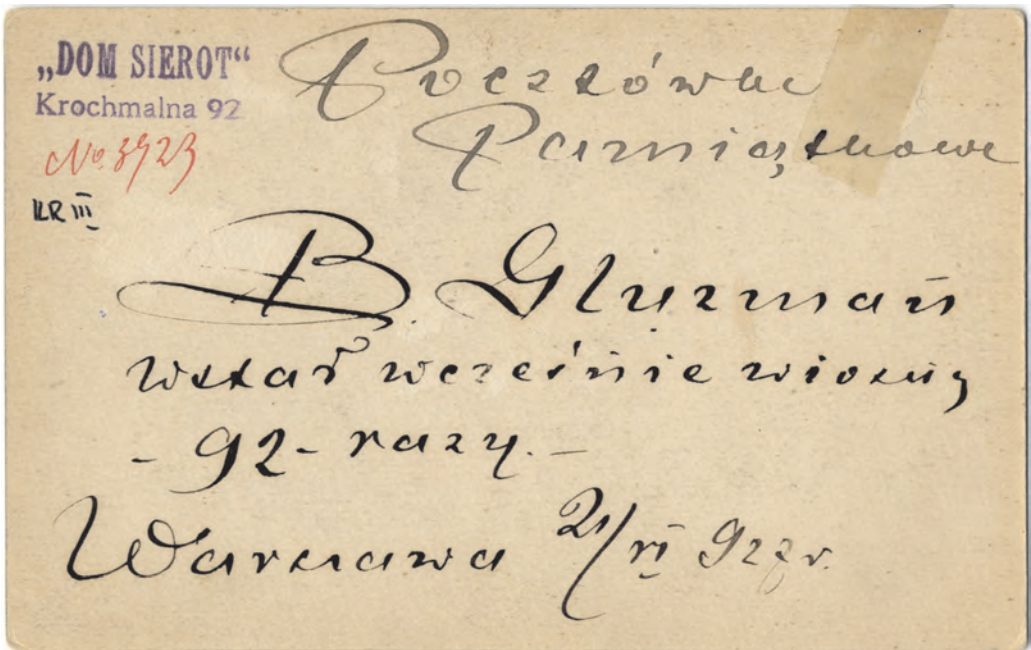 „DOM SIEROT“
Krochmalna 92
No 3923
KR III
Pocztówka
Pamiątkowa
B. Gluzman
wstał wcześnie wiosną
- 92 - razy. -
Warszawa 21/VI 927 r.